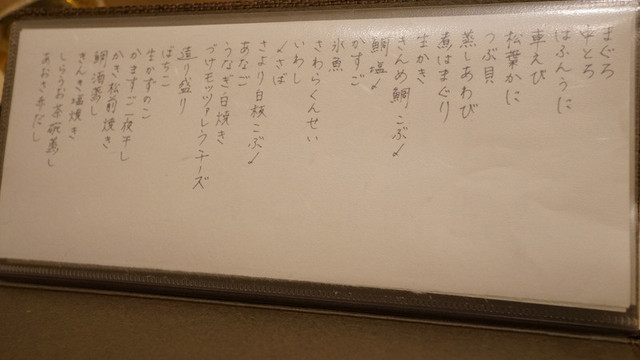 まぐろ
中とろ
はふんうに
車えび
松葉かに
つぶ貝
蒸しあわび
煮はまぐり
生かき
きんめ鯛こぶ〆
鯛塩〆
かすご
氷魚
さわらくんせい
いわし
〆さば
さより白板こぶ〆
あなご
うなぎ白焼き
づけモッツァレラチーズ
造り盛り
ばちこ
生かずのこ
かます一夜干し
かき松前焼き
鯛酒蒸し
きんき塩焼き
しらうお茶碗蒸し
あおさ赤だし